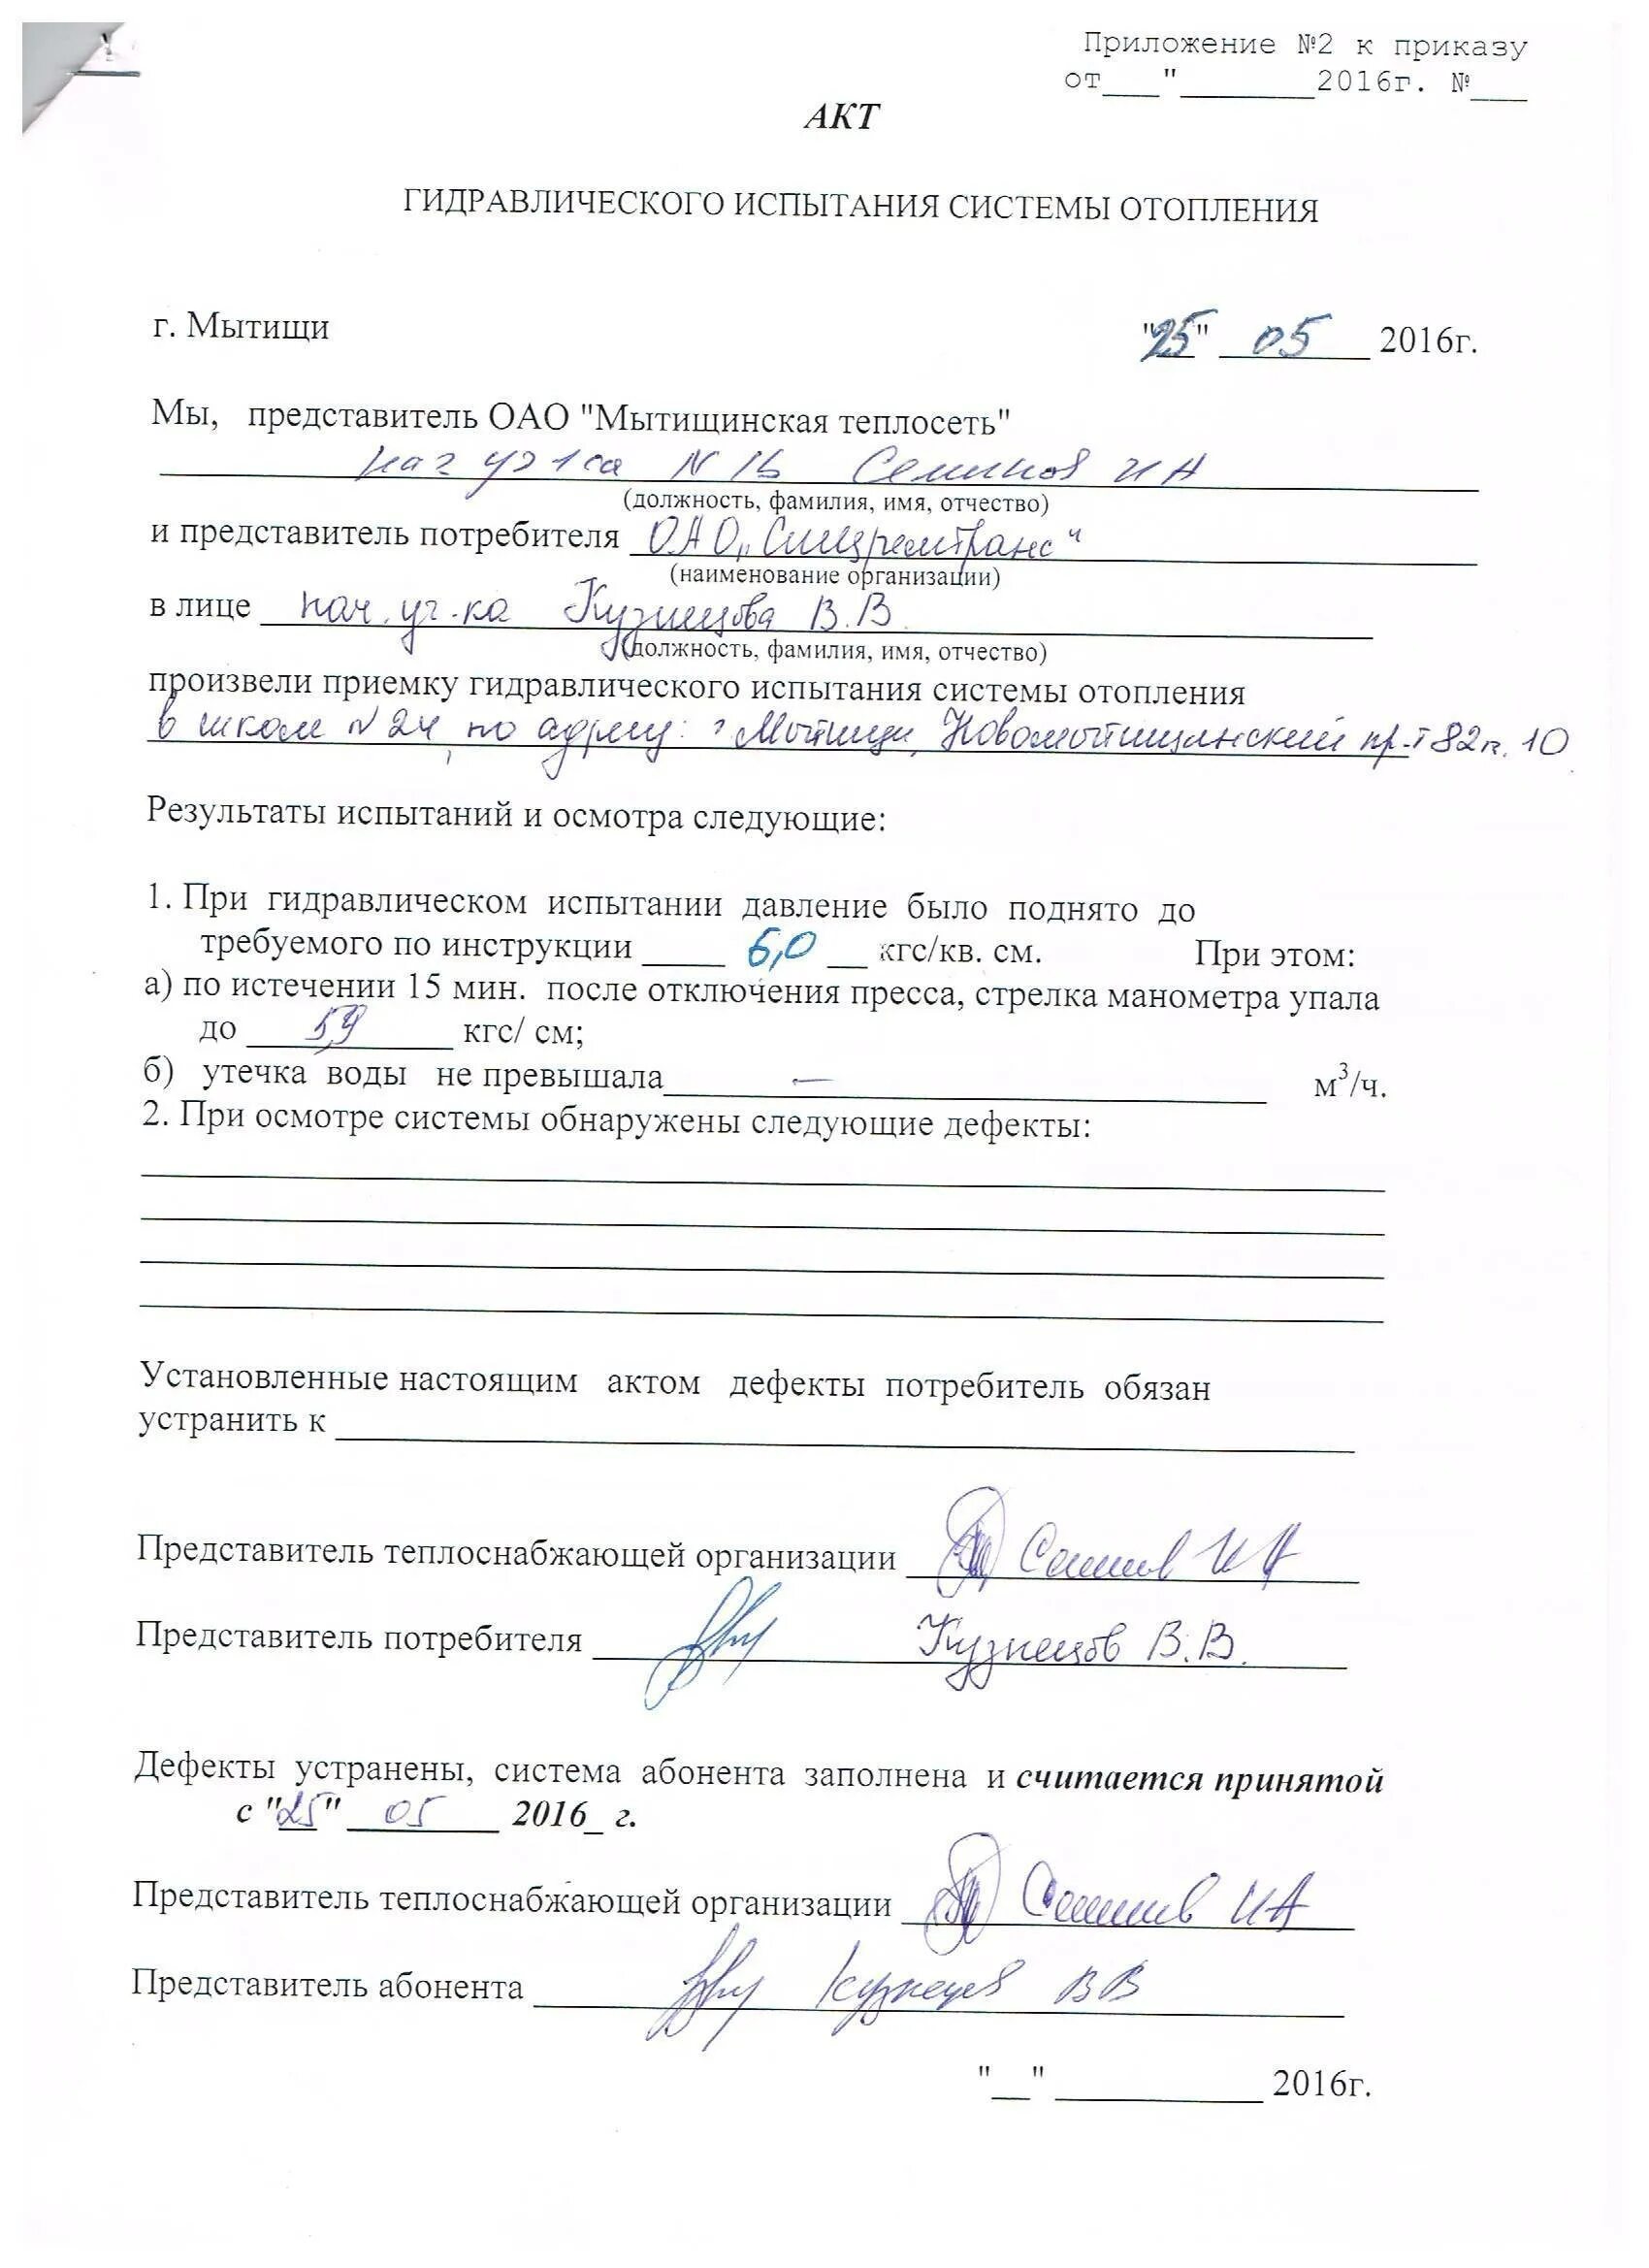 Приложение №2 к приказу
от___"_______2016г. №___
АКТ
ГИДРАВЛИЧЕСКОГО ИСПЫТАНИЯ СИСТЕМЫ ОТОПЛЕНИЯ
г. Мытищи "25" 05 2016г.
Мы, представитель ОАО "Мытищинская теплосеть"
N 1 И А
(должность, фамилия, имя, отчество)
и представитель потребителя ОАО „Спецремтранс"
(наименование организации)
в лице нач. уч-ка Кузнецова В.В.
(должность, фамилия, имя, отчество)
произвели приемку гидравлического испытания системы отопления
в школе №24, по адресу: г. Мытищи, Новомытищинский пр-т 82 10
Результаты испытаний и осмотра следующие:
1. При гидравлическом испытании давление было поднято до
требуемого по инструкции _____ 6,0 __ кгс/кв. см. При этом:
а) по истечении 15 мин. после отключения пресса, стрелка манометра упала
до 5,9 кгс/ см;
б) утечка воды не превышала — м³/ч.
2. При осмотре системы обнаружены следующие дефекты:
Установленные настоящим актом дефекты потребитель обязан
устранить к
Представитель теплоснабжающей организации И А
Представитель потребителя Кузнецов В.В.
Дефекты устранены, система абонента заполнена и считается принятой
с "25" 05 2016_ г.
Представитель теплоснабжающей организации И А
Представитель абонента Кузнецов В В
"__" ___________ 2016г.